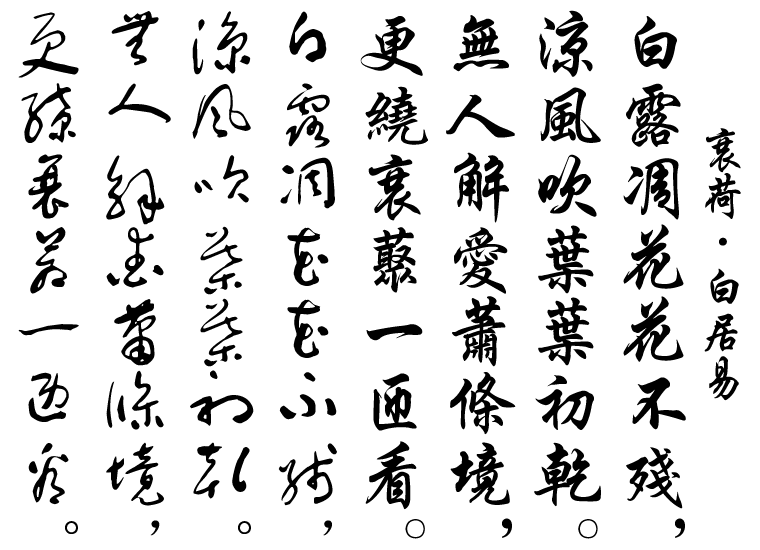 衰荷・白居易
白露凋花花不殘，
涼風吹葉葉初乾。
無人解愛蕭條境，
更繞衰藂一匝看。
白露凋花花不殘，
涼風吹葉葉初乾。
無人解愛蕭條境，
更繞衰藂一匝看。